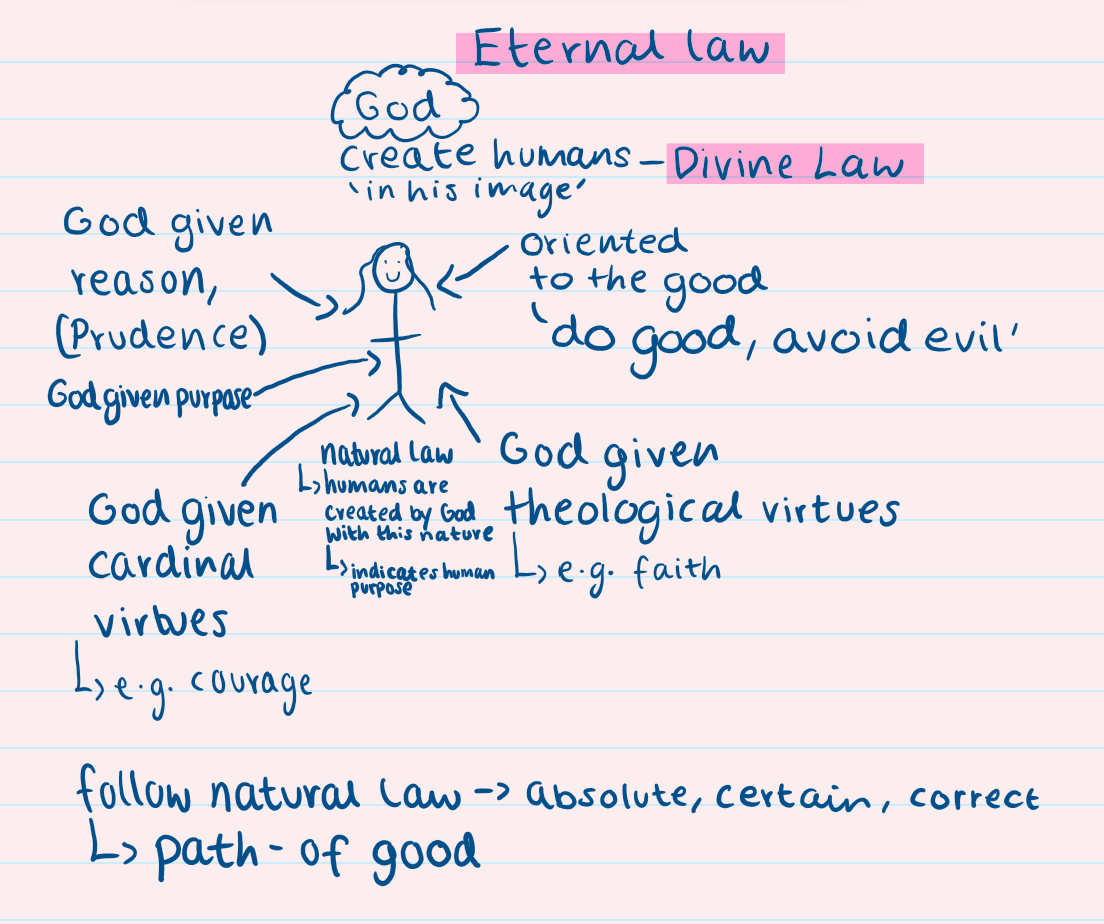 Eternal law
God
create humans – Divine Law
'in his image'
God given
reason,
(Prudence)
oriented
to the good
'do good, avoid evil'
God given purpose
God given
cardinal
virtues
↳ e.g. courage
natural law
↳ humans are
created by God
with this nature
↳ indicates human
purpose
God given
theological virtues
↳ e.g. faith
follow natural law -> absolute, certain, correct
↳ path-of good